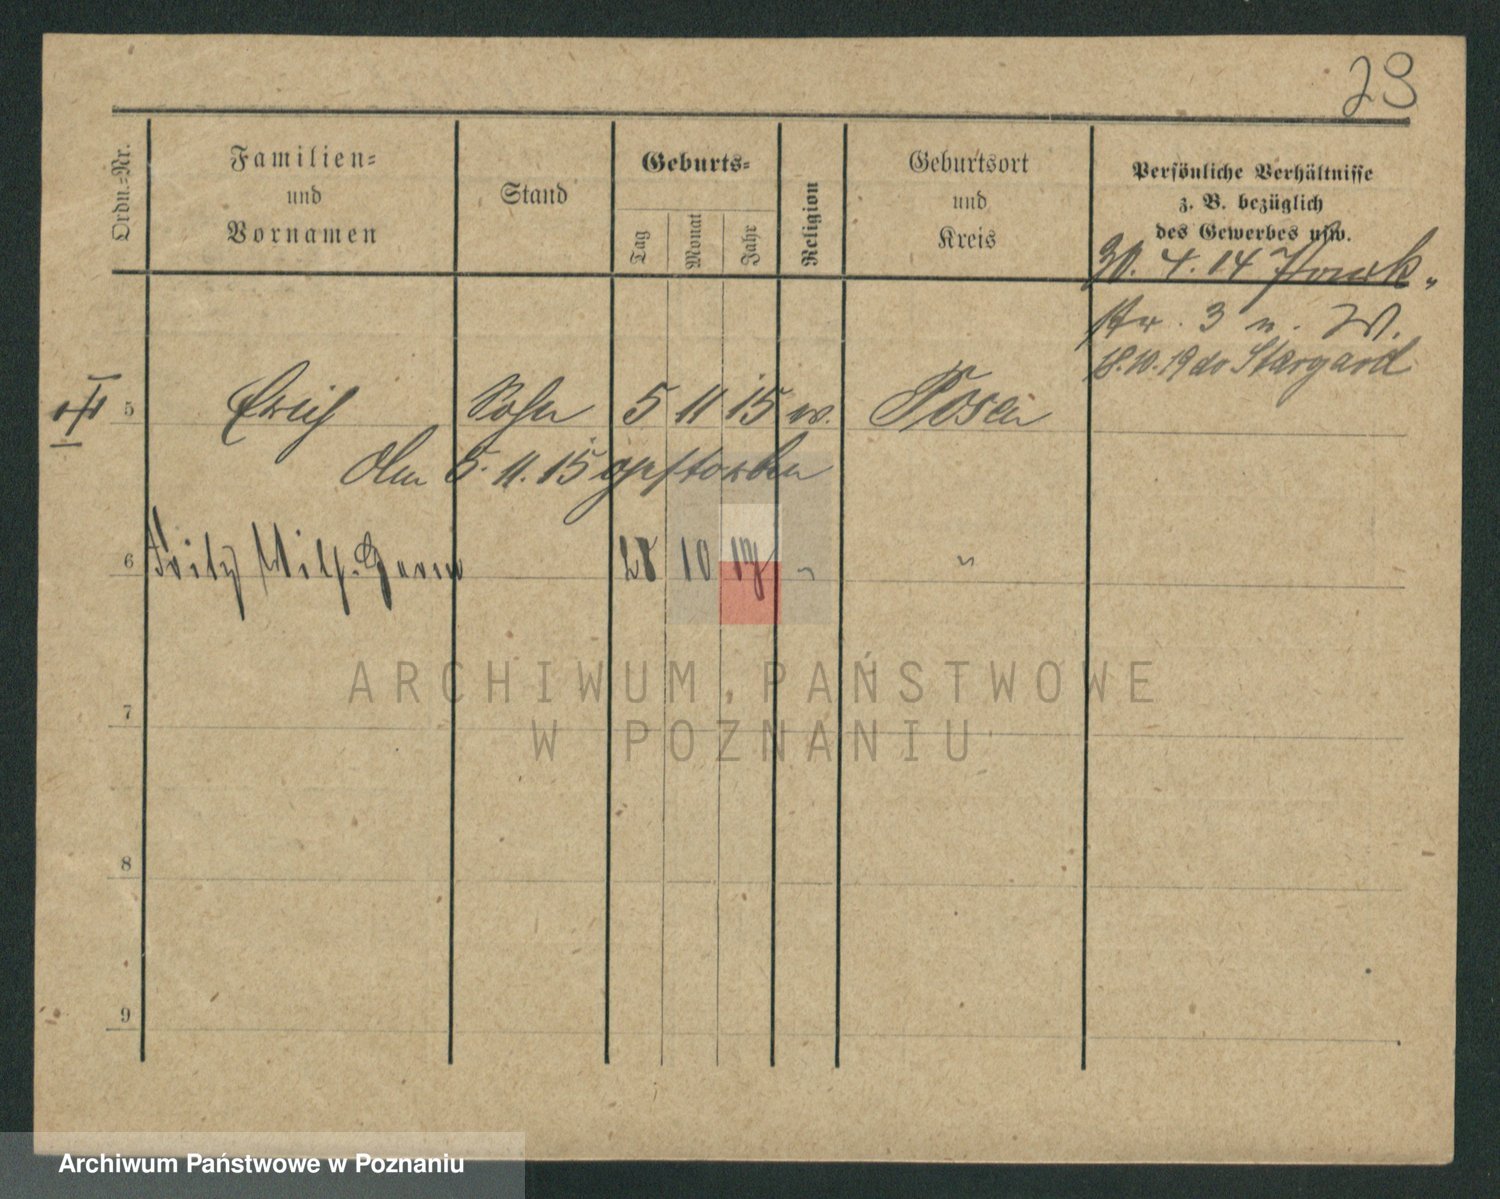 23
Ordn.-Nr.
Familien-
und
Vornamen
Stand
Geburts-
Tag
Monat
Jahr
Religion
Geburtsort
und
Kreis
Persönliche Verhältnisse
z. B. bezüglich
des Gewerbes usw.
30. 4. 14
str. 3 n. W.
18.10.19 do Stargard
5 Erich Sohn 5 11 15 ev. Posen
Am 5. 11. 15 gestorben
6 Fritz Wilh. 28 10 17 " "
7
8
9
ARCHIWUM PAŃSTWOWE
W POZNANIU
Archiwum Państwowe w Poznaniu